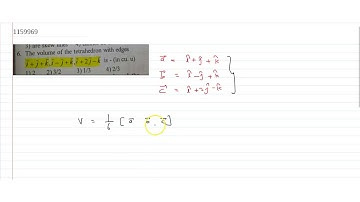 1159969
3) are skew lines
6. The volume of the tetrahedron with edges
î + ĵ + k̂, î - ĵ + k̂, î + 2ĵ - k̂ is - (in cu. u)
1) 2 2) 3/2 3) 1/3 4) 2/3
a⃗ = î + ĵ + k̂
b⃗ = î - ĵ + k̂
c⃗ = î + 2ĵ - k̂
V = 1/6 [a⃗ b⃗ c⃗]